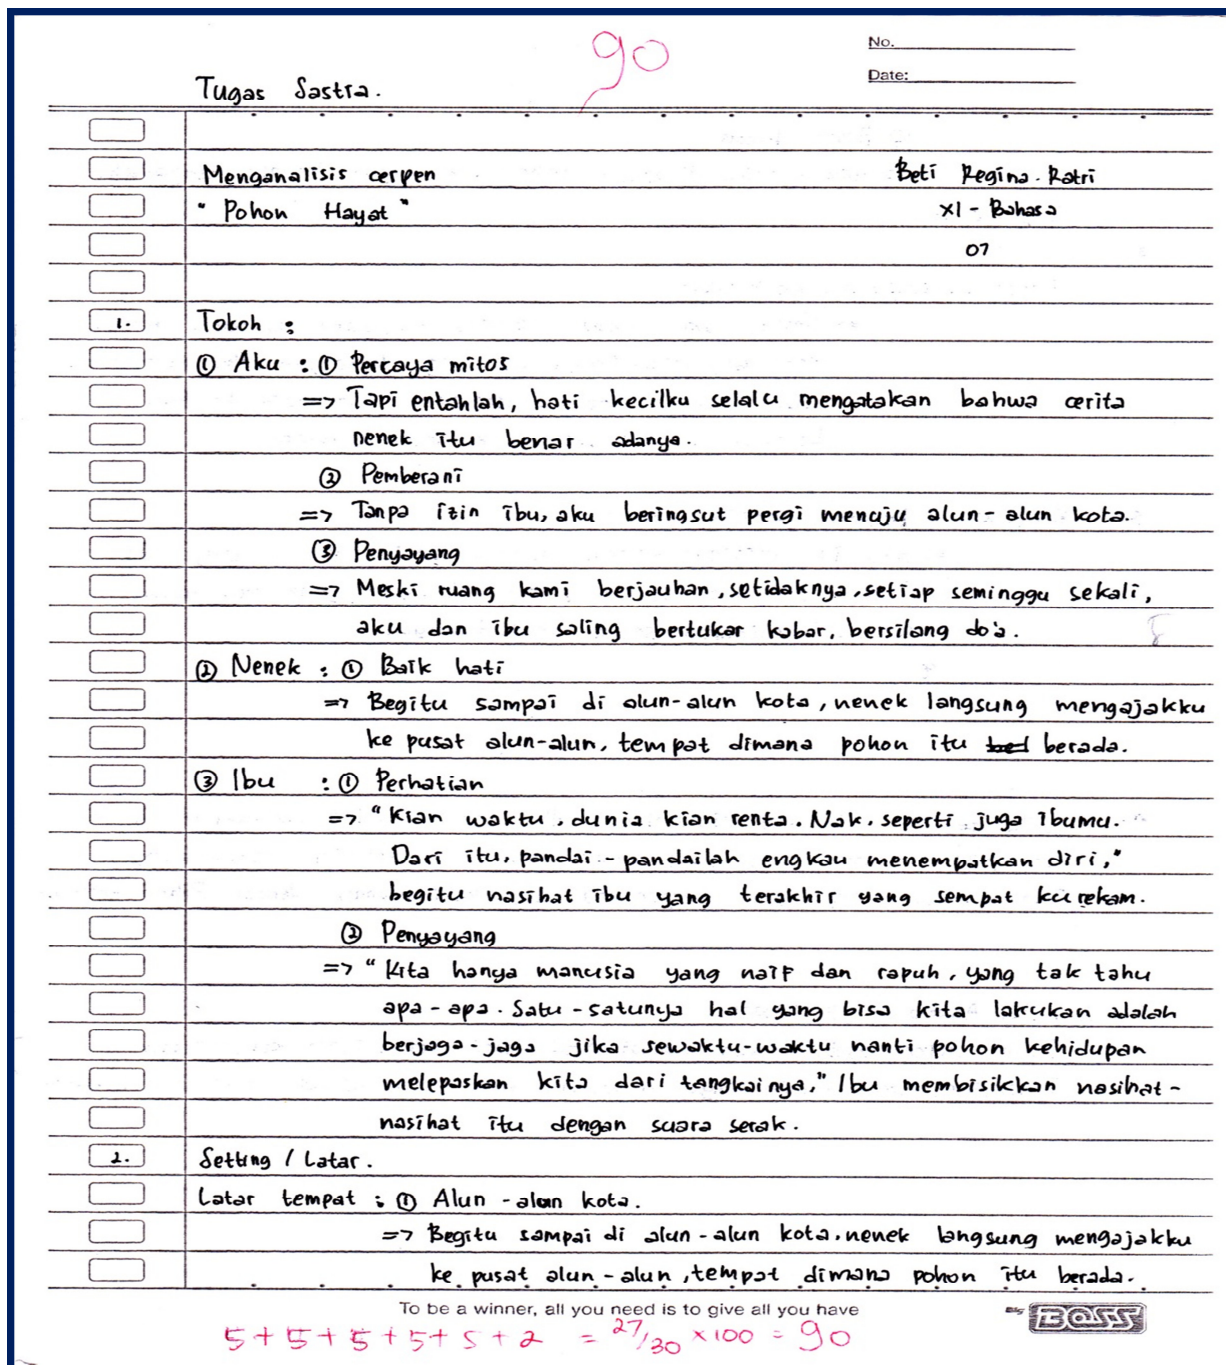 90
No.
Date:
Tugas Sastra.
Menganalisis cerpen
Beti Regina. Ratri
" Pohon Hayat "
XI - Bahasa
07
1. Tokoh :
① Aku : ① Percaya mitos
=> Tapi entahlah, hati kecilku selalu mengatakan bahwa cerita
nenek itu benar adanya.
② Pemberani
=> Tanpa izin ibu, aku beringsut pergi menuju alun-alun kota.
③ Penyayang
=> Meski ruang kami berjauhan, setidaknya, setiap seminggu sekali,
aku dan ibu saling bertukar kabar, bersilang do'a.
② Nenek : ① Baik hati
=> Begitu sampai di alun-alun kota, nenek langsung mengajakku
ke pusat alun-alun, tempat dimana pohon itu berada.
③ Ibu : ① Perhatian
=> "Kian waktu, dunia kian renta. Nak, seperti juga Ibumu.
Dari itu, pandai-pandailah engkau menempatkan diri,"
begitu nasihat ibu yang terakhir yang sempat ku rekam.
② Penyayang
=> "Kita hanya manusia yang naif dan rapuh, yang tak tahu
apa-apa. Satu-satunya hal yang bisa kita lakukan adalah
berjaga-jaga jika sewaktu-waktu nanti pohon kehidupan
melepaskan kita dari tangkainya," Ibu membisikkan nasihat-
nasihat itu dengan suara serak.
2. Setting / Latar.
Latar tempat : ① Alun-alun kota.
=> Begitu sampai di alun-alun kota, nenek langsung mengajakku
ke pusat alun-alun, tempat dimana pohon itu berada.
To be a winner, all you need is to give all you have
BOSS
5+5+5+5+5+2 = 27/30 x100 = 90